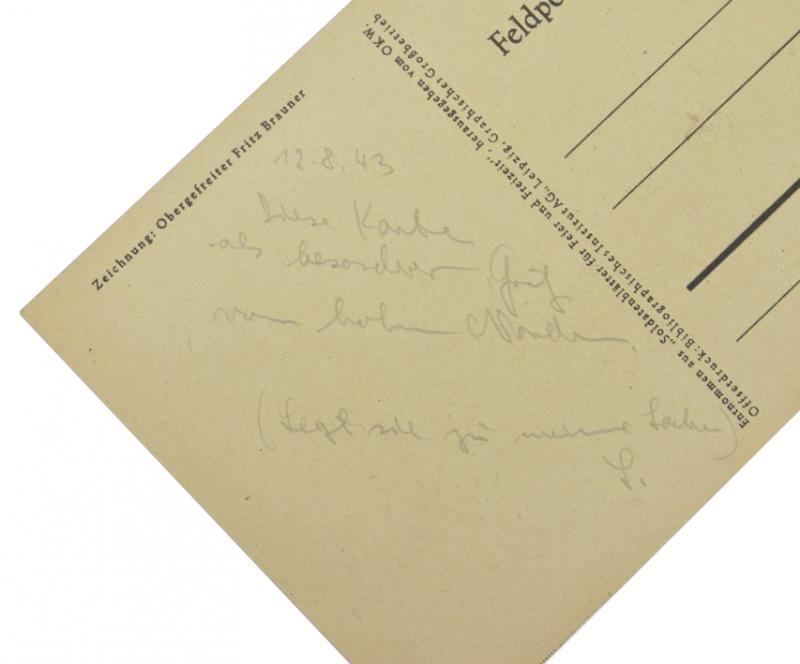 Feldpo
Zeichnung: Obergefreiter Fritz Brauner
12.8.43
Diese Karte
als besonderer Gruß
vom hohen Norden.
(Legt sie zu meine Sachen)
S.
Entnommen aus „Soldatenblätter für Feier und Freizeit", herausgegeben vom OKW.
Offsetdruck: Bibliographisches Institut AG., Leipzig, Graphischer Großbetrieb